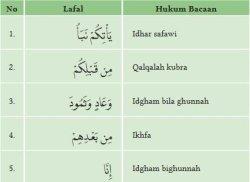 No Lafal Hukum Bacaan
1. يَأْتِكُمْ نَبَأُ Idhar safawi
2. مِن قَبْلِكُمْ Qalqalah kubra
3. وَعَادٍ وَثَمُودَ Idgham bila ghunnah
4. مِنْ بَعْدِهِمْ Ikhfa
5. إِنَّا Idgham bighunnah